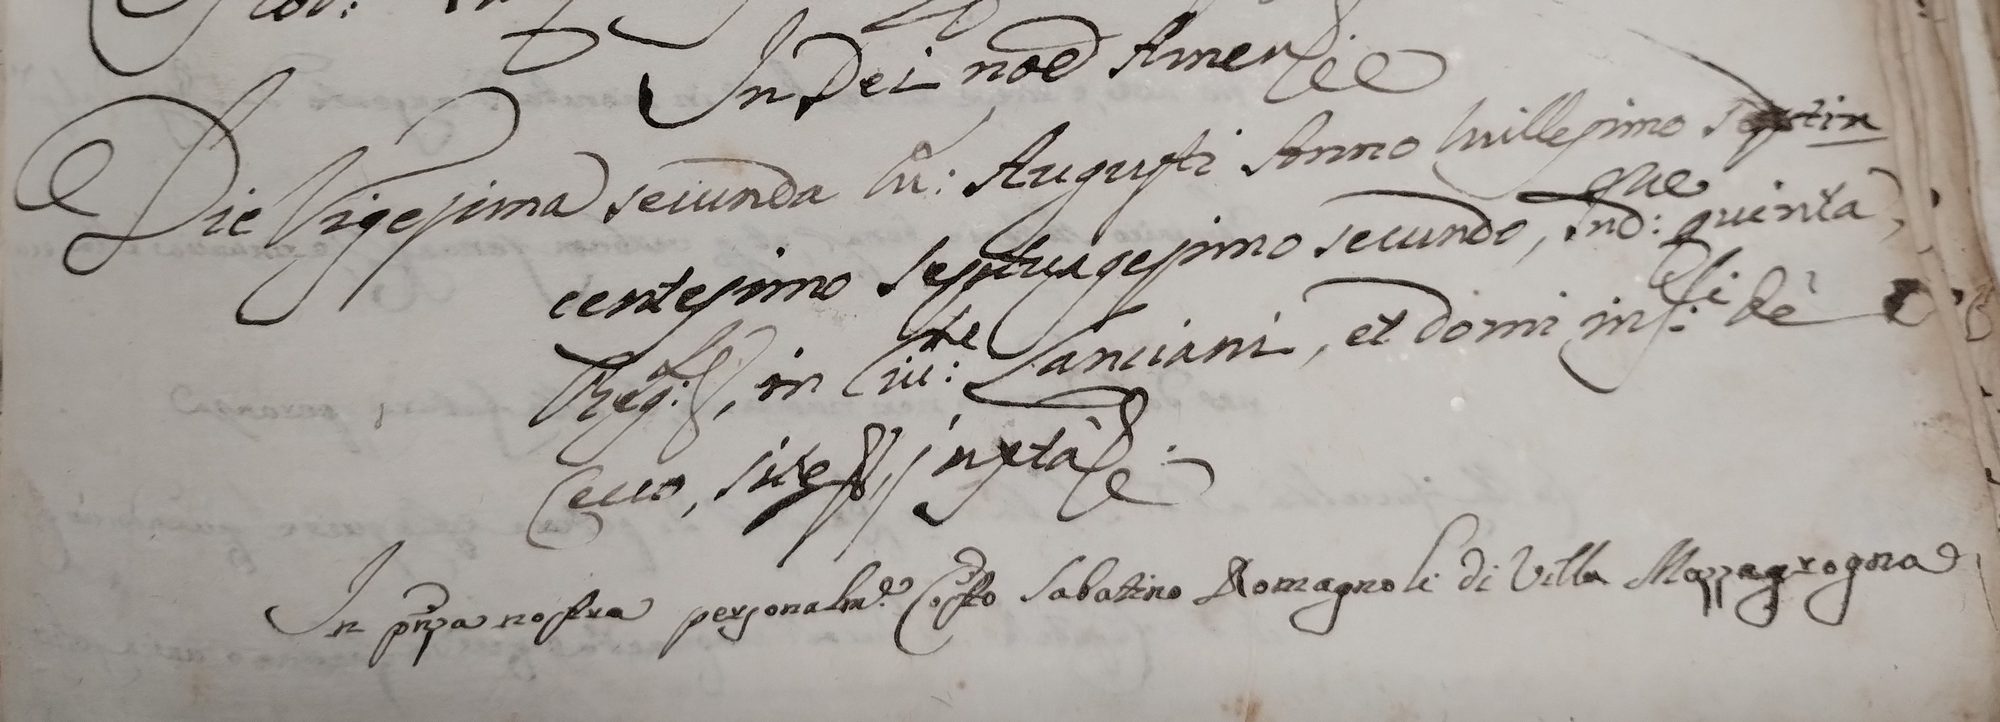 In Dei nõe Amen
Die Vigesima secunda M: Augusti Anno Millesimo Septin
centesimo Septuagesimo secundo, Ind: quinta,
in Civ:te Lanciani, et domi de
Cecco, sitis, juxta
In pñza nostra personalm.e Costo Sabatino Romagnoli di Villa Mozzagrogna